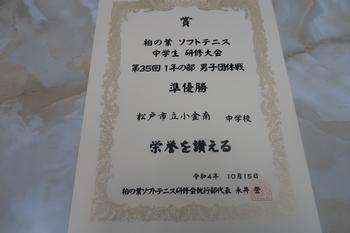 賞
柏の葉 ソフトテニス
中学生 研修大会
第35回 1年の部 男子団体戦
準優勝
松戸市立小金南 中学校
栄誉を讃える
令和4年 10月15日
柏の葉ソフトテニス研修会執行部代表 永井 登